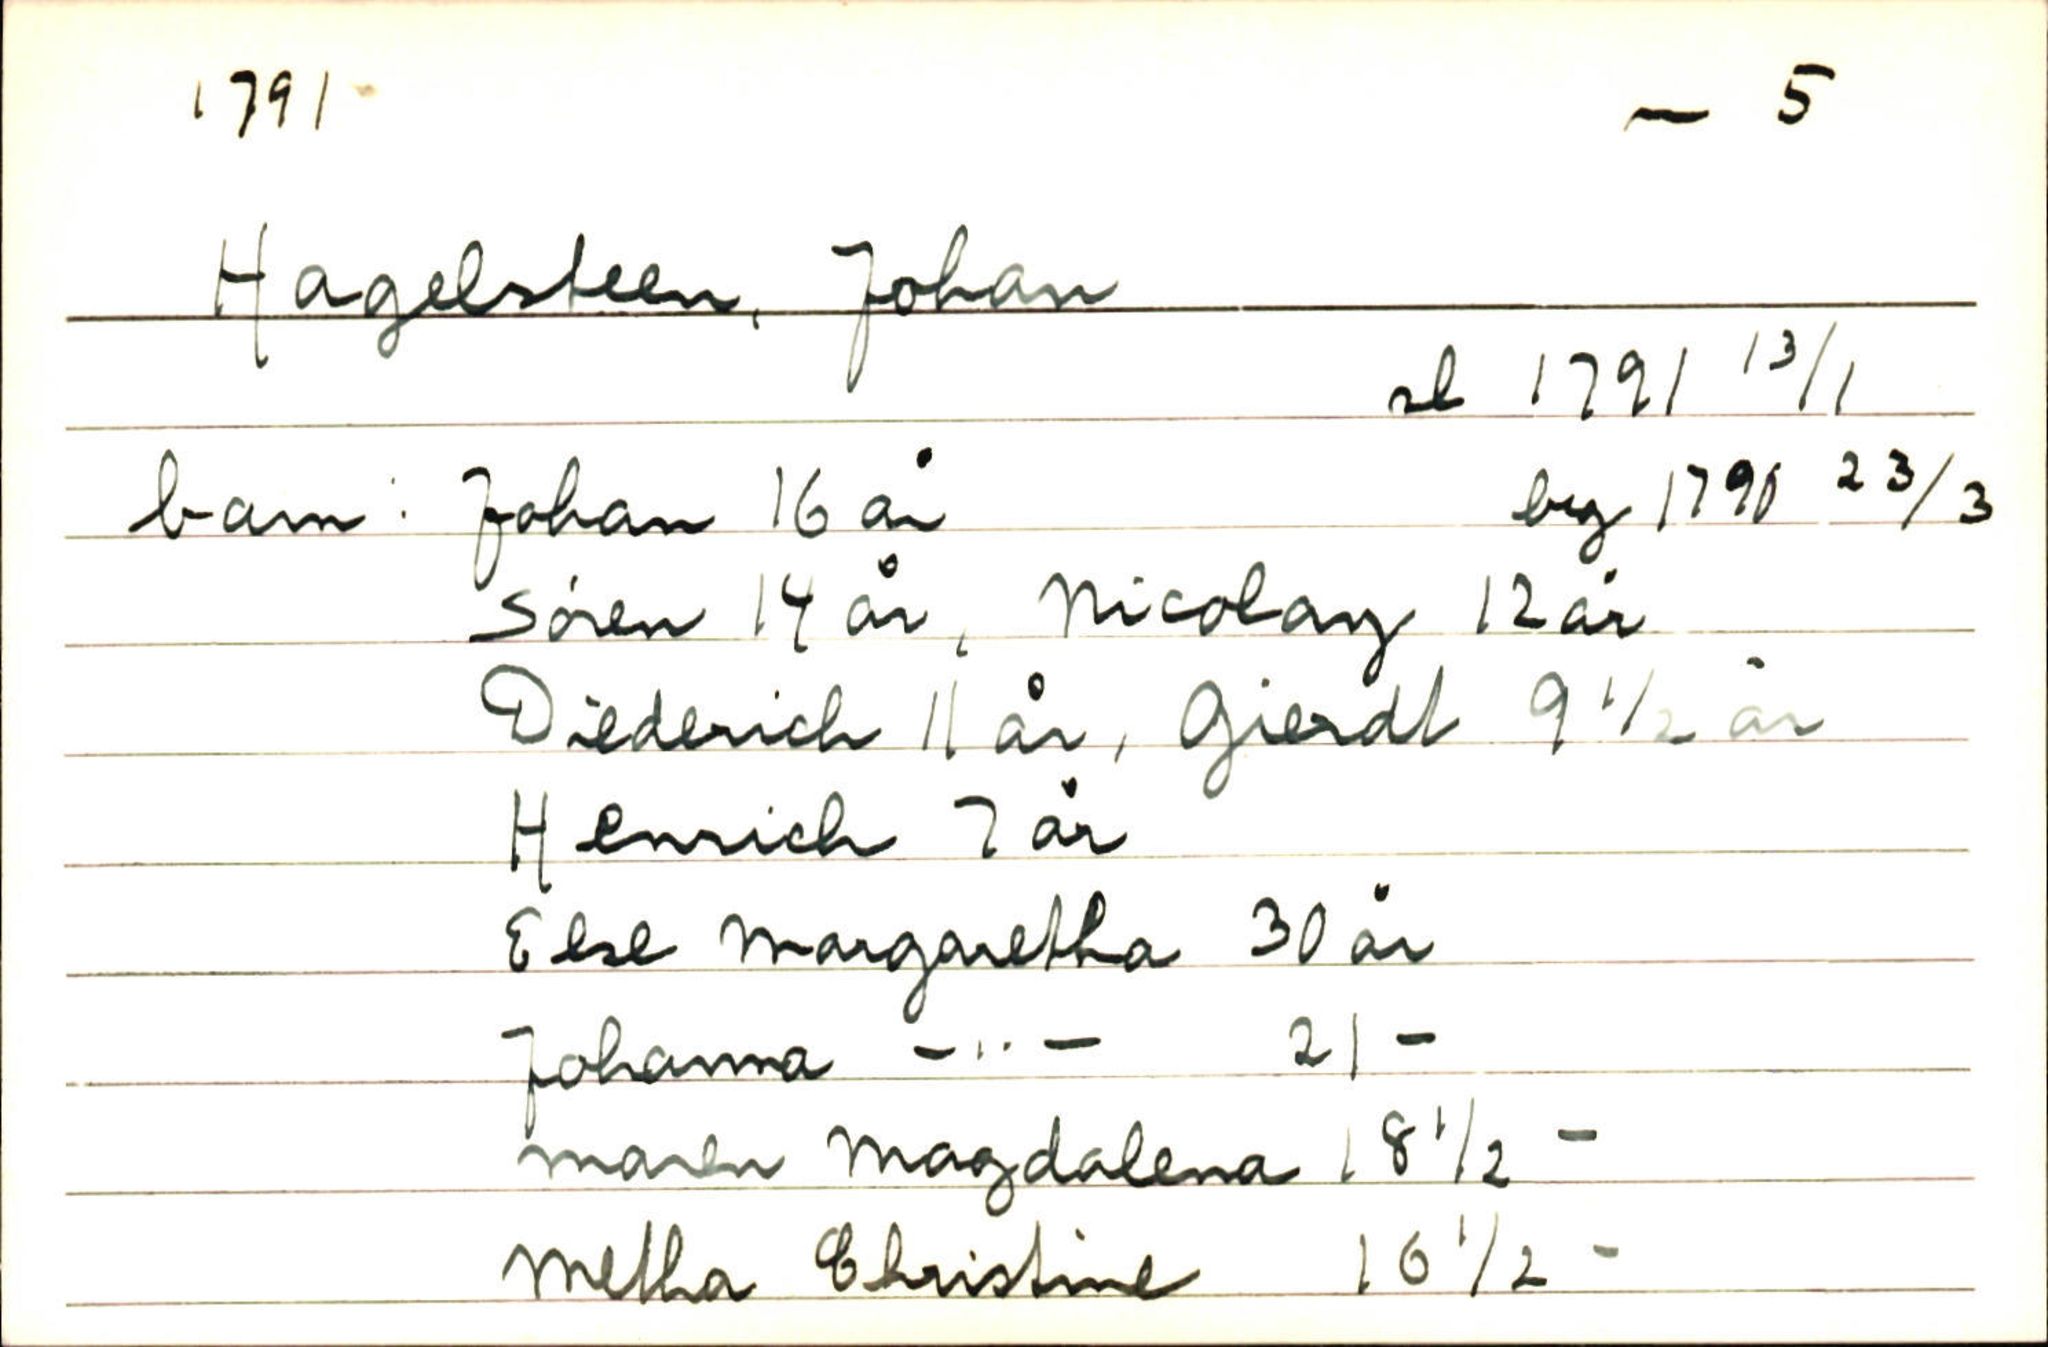 1791 — 5
Hagelsteen, Johan
sl 1791 13/1
barn: Johan 16 år brg 1790 23/3
Søren 14 år, Nicolay 12 år
Diederich 11 år, Gierdt 9 1/2 år
Henrich 7 år
Else Margaretha 30 år
Johanna -"- 21 -
Maren Magdalena 18 1/2 -
Metha Christine 16 1/2 -